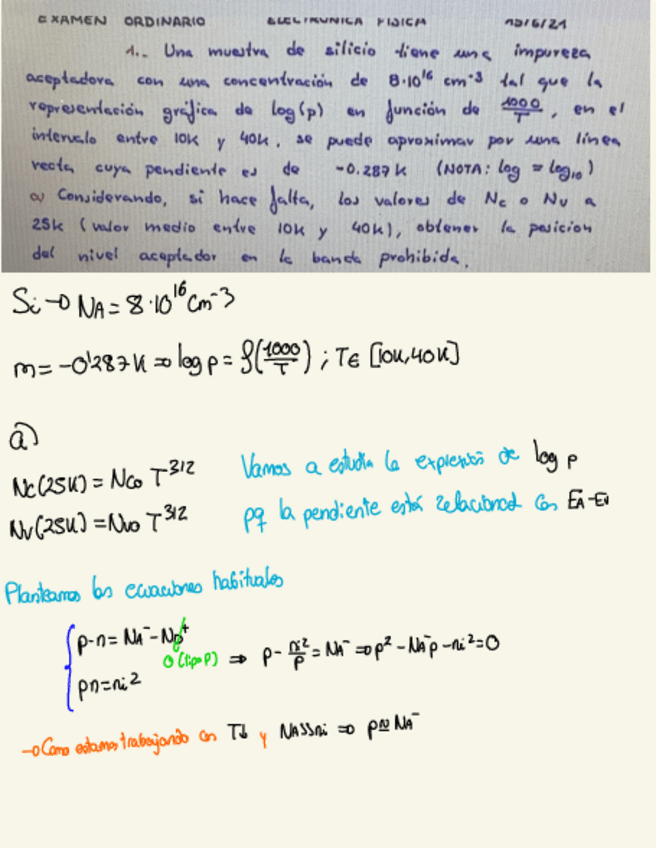 EXAMEN ORDINARIO ELECTRONICA FISICA 15/6/21
1.- Una muestra de silicio tiene una impureza
aceptadora con una concentración de 8·10¹⁶ cm⁻³ tal que la
representación gráfica de log(p) en función de 1000/T, en el
intervalo entre 10K y 40K, se puede aproximar por una línea
recta cuya pendiente es de -0.287K (NOTA: log ≡ log₁₀)
a) Considerando, si hace falta, los valores de Nc o Nv a
25K (valor medio entre 10K y 40K), obtener la posición
del nivel aceptador en la banda prohibida.
Si → NA = 8·10¹⁶ cm⁻³
m = -0'287K ⇒ log p = f(1000/T) ; T∈ [10K, 40K]
a)
Nc(25K) = Nco T^3/2 Vamos a estudia la expresión de log p
Nv(25K) = Nvo T^3/2 pq la pendiente está relacionad con EA-EV
Planteamos las ecuaciones habituales
p-n = NA⁻ - ND⁺
0 (tipo P) ⇒ p - ni²/p = NA⁻ ⇒ p² - NA⁻p - ni² = 0
pn = ni²
→ Como estamos trabajando con T↓ y NA>>ni ⇒ p≃NA⁻